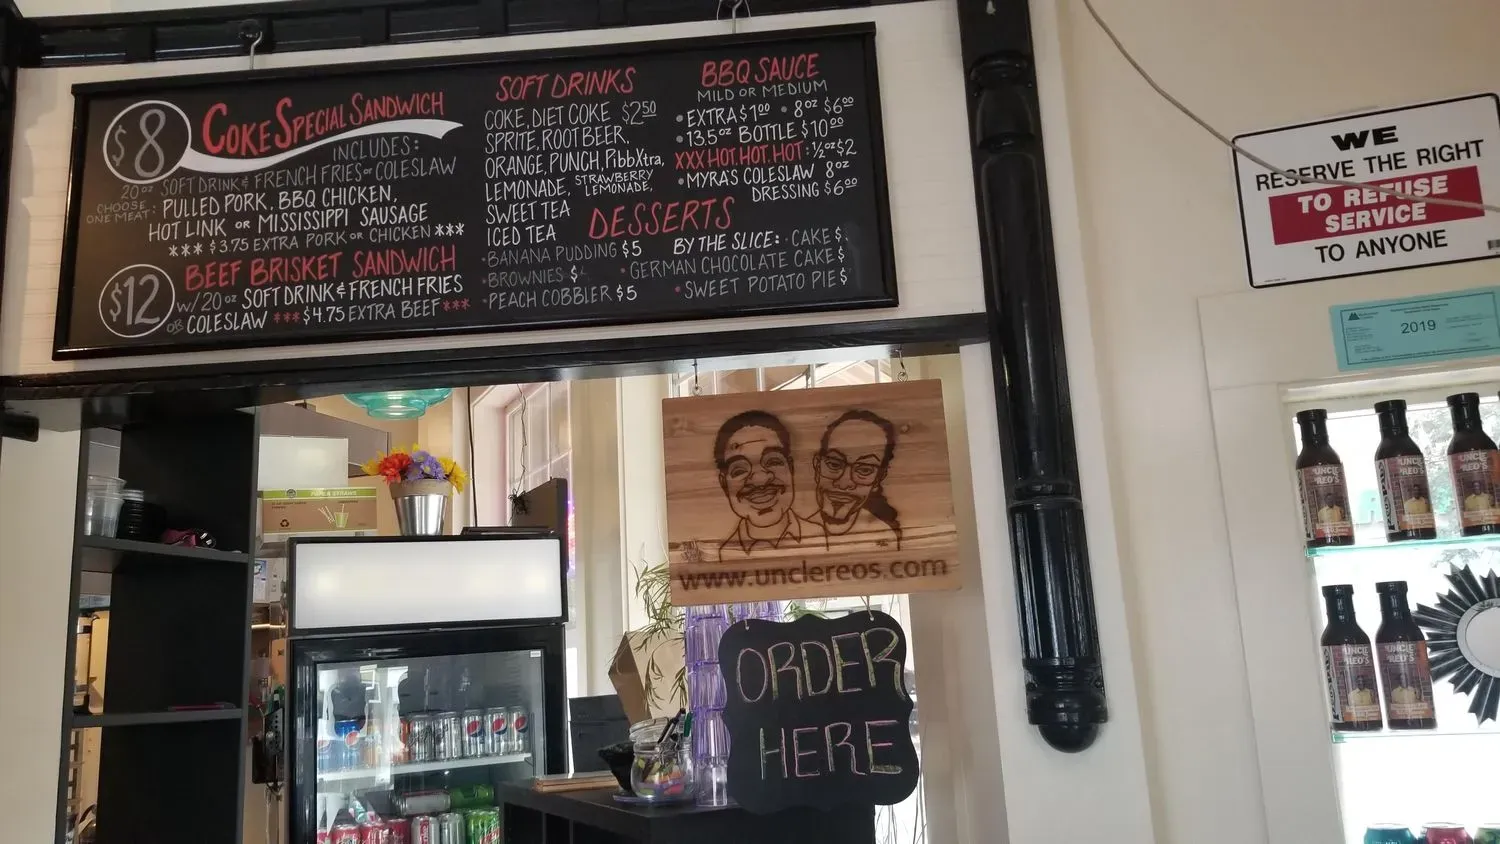 $8
COKE SPECIAL SANDWICH
INCLUDES:
20oz SOFT DRINK & FRENCH FRIES or COLESLAW
CHOOSE ONE MEAT: PULLED PORK, BBQ CHICKEN,
HOT LINK OR MISSISSIPPI SAUSAGE
*** $3.75 EXTRA PORK OR CHICKEN ***
$12
BEEF BRISKET SANDWICH
W/20oz SOFT DRINK & FRENCH FRIES
OR COLESLAW *** $4.75 EXTRA BEEF ***
SOFT DRINKS
COKE, DIET COKE $2.50
SPRITE, ROOT BEER,
ORANGE, PUNCH, PibbXtra,
LEMONADE, STRAWBERRY LEMONADE,
SWEET TEA
ICED TEA
BBQ SAUCE
MILD OR MEDIUM
• EXTRA $1.00 • 8oz $6.00
• 13.5oz BOTTLE $10.00
XXX HOT. HOT. HOT: ½oz $2
• MYRA'S COLESLAW 8oz
DRESSING $6.00
DESSERTS
• BANANA PUDDING $5
• BROWNIES $
• PEACH COBBLER $5
BY THE SLICE: • CAKE $
• GERMAN CHOCOLATE CAKE $
• SWEET POTATO PIE $
WE
RESERVE THE RIGHT
TO REFUSE
SERVICE
TO ANYONE
2019
PAPER STRAWS
www.unclereos.com
ORDER
HERE
UNCLE
REO'S
UNCLE
REO'S
UNCLE
REO'S
UNCLE
REO'S
UNCLE
REO'S